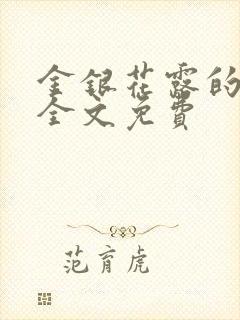 金银花露的
全文免费
范育虎